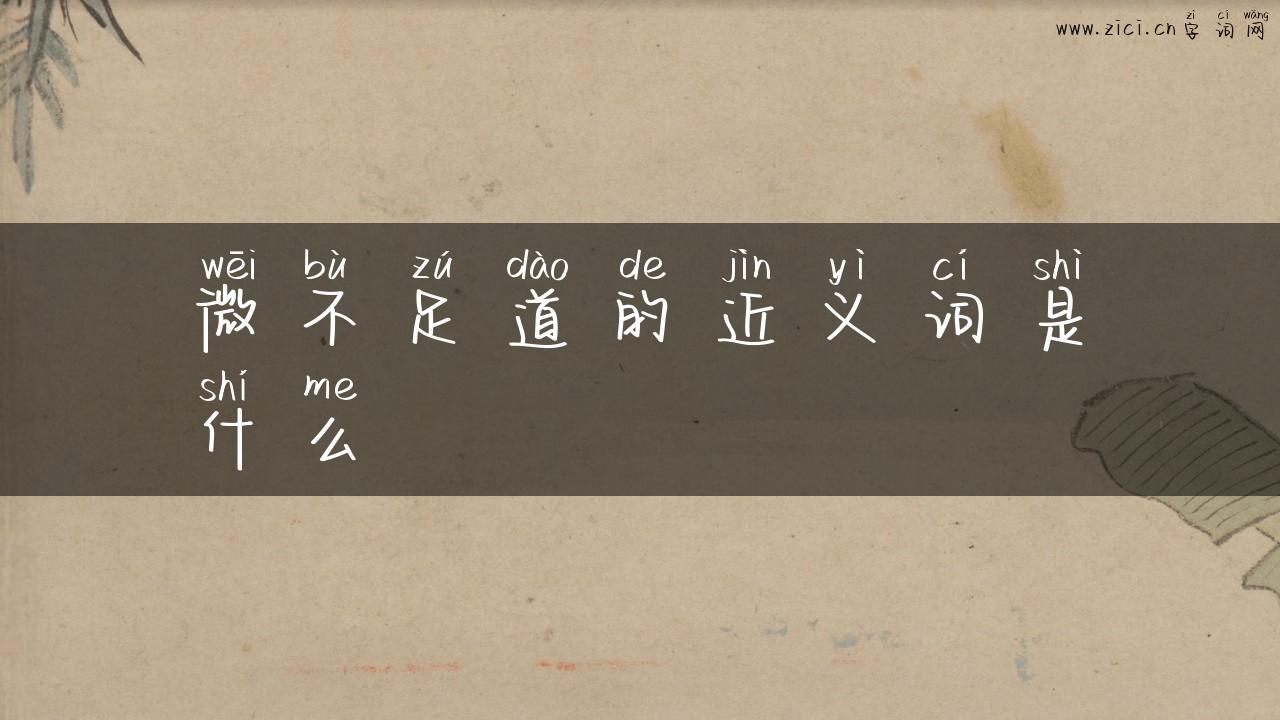 zì cí wǎng
www.zici.cn 字词网
wēi bù zú dào de jìn yì cí shì
微不足道的近义词是
shí me
什么